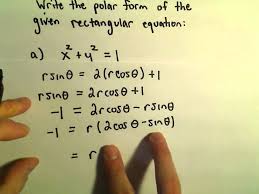 Write the polar form of the
given rectangular equation:
a) x² + y² = 1
r sinθ = 2(r cosθ) + 1
r sinθ = 2r cosθ + 1
-1 = 2r cosθ - r sinθ
-1 = r(2cosθ - sinθ)
= r